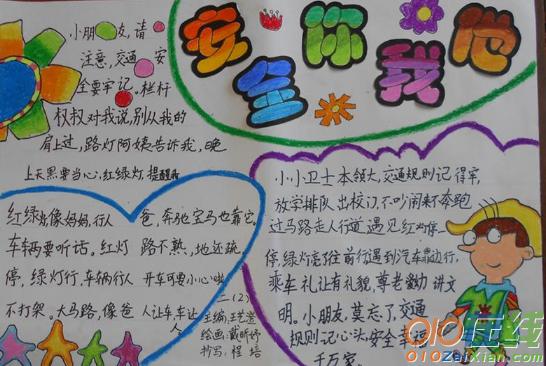 安全你我他
小朋友,请
注意,交通安
全要牢记。栏杆
叔叔对我说,别从我的
肩上过,路灯阿姨告诉我,晚
上天黑要当心,红绿灯,提醒我
红绿灯像妈妈,行人
车辆要听话。红灯
停,绿灯行,车辆行人
不打架。大马路,像爸
爸,奔驰宝马也靠它,
路不熟,地还疏
开车可要小心啦
人让车,让人
二(2)
主编:王艺澄
绘画:戴昕妤
抄写:程培
小小卫士本领大,交通规则记得牢,
放学排队出校门,不吵闹来不奔跑
过马路走人行道,遇见红灯停一
停,绿灯亮了往前行,遇到汽车靠边行,
乘车礼让有礼貌,尊老爱幼讲文
明。小朋友莫忘了,交通
规则记心头,安全幸福
千万家。
010在线
010ZaiXian.com